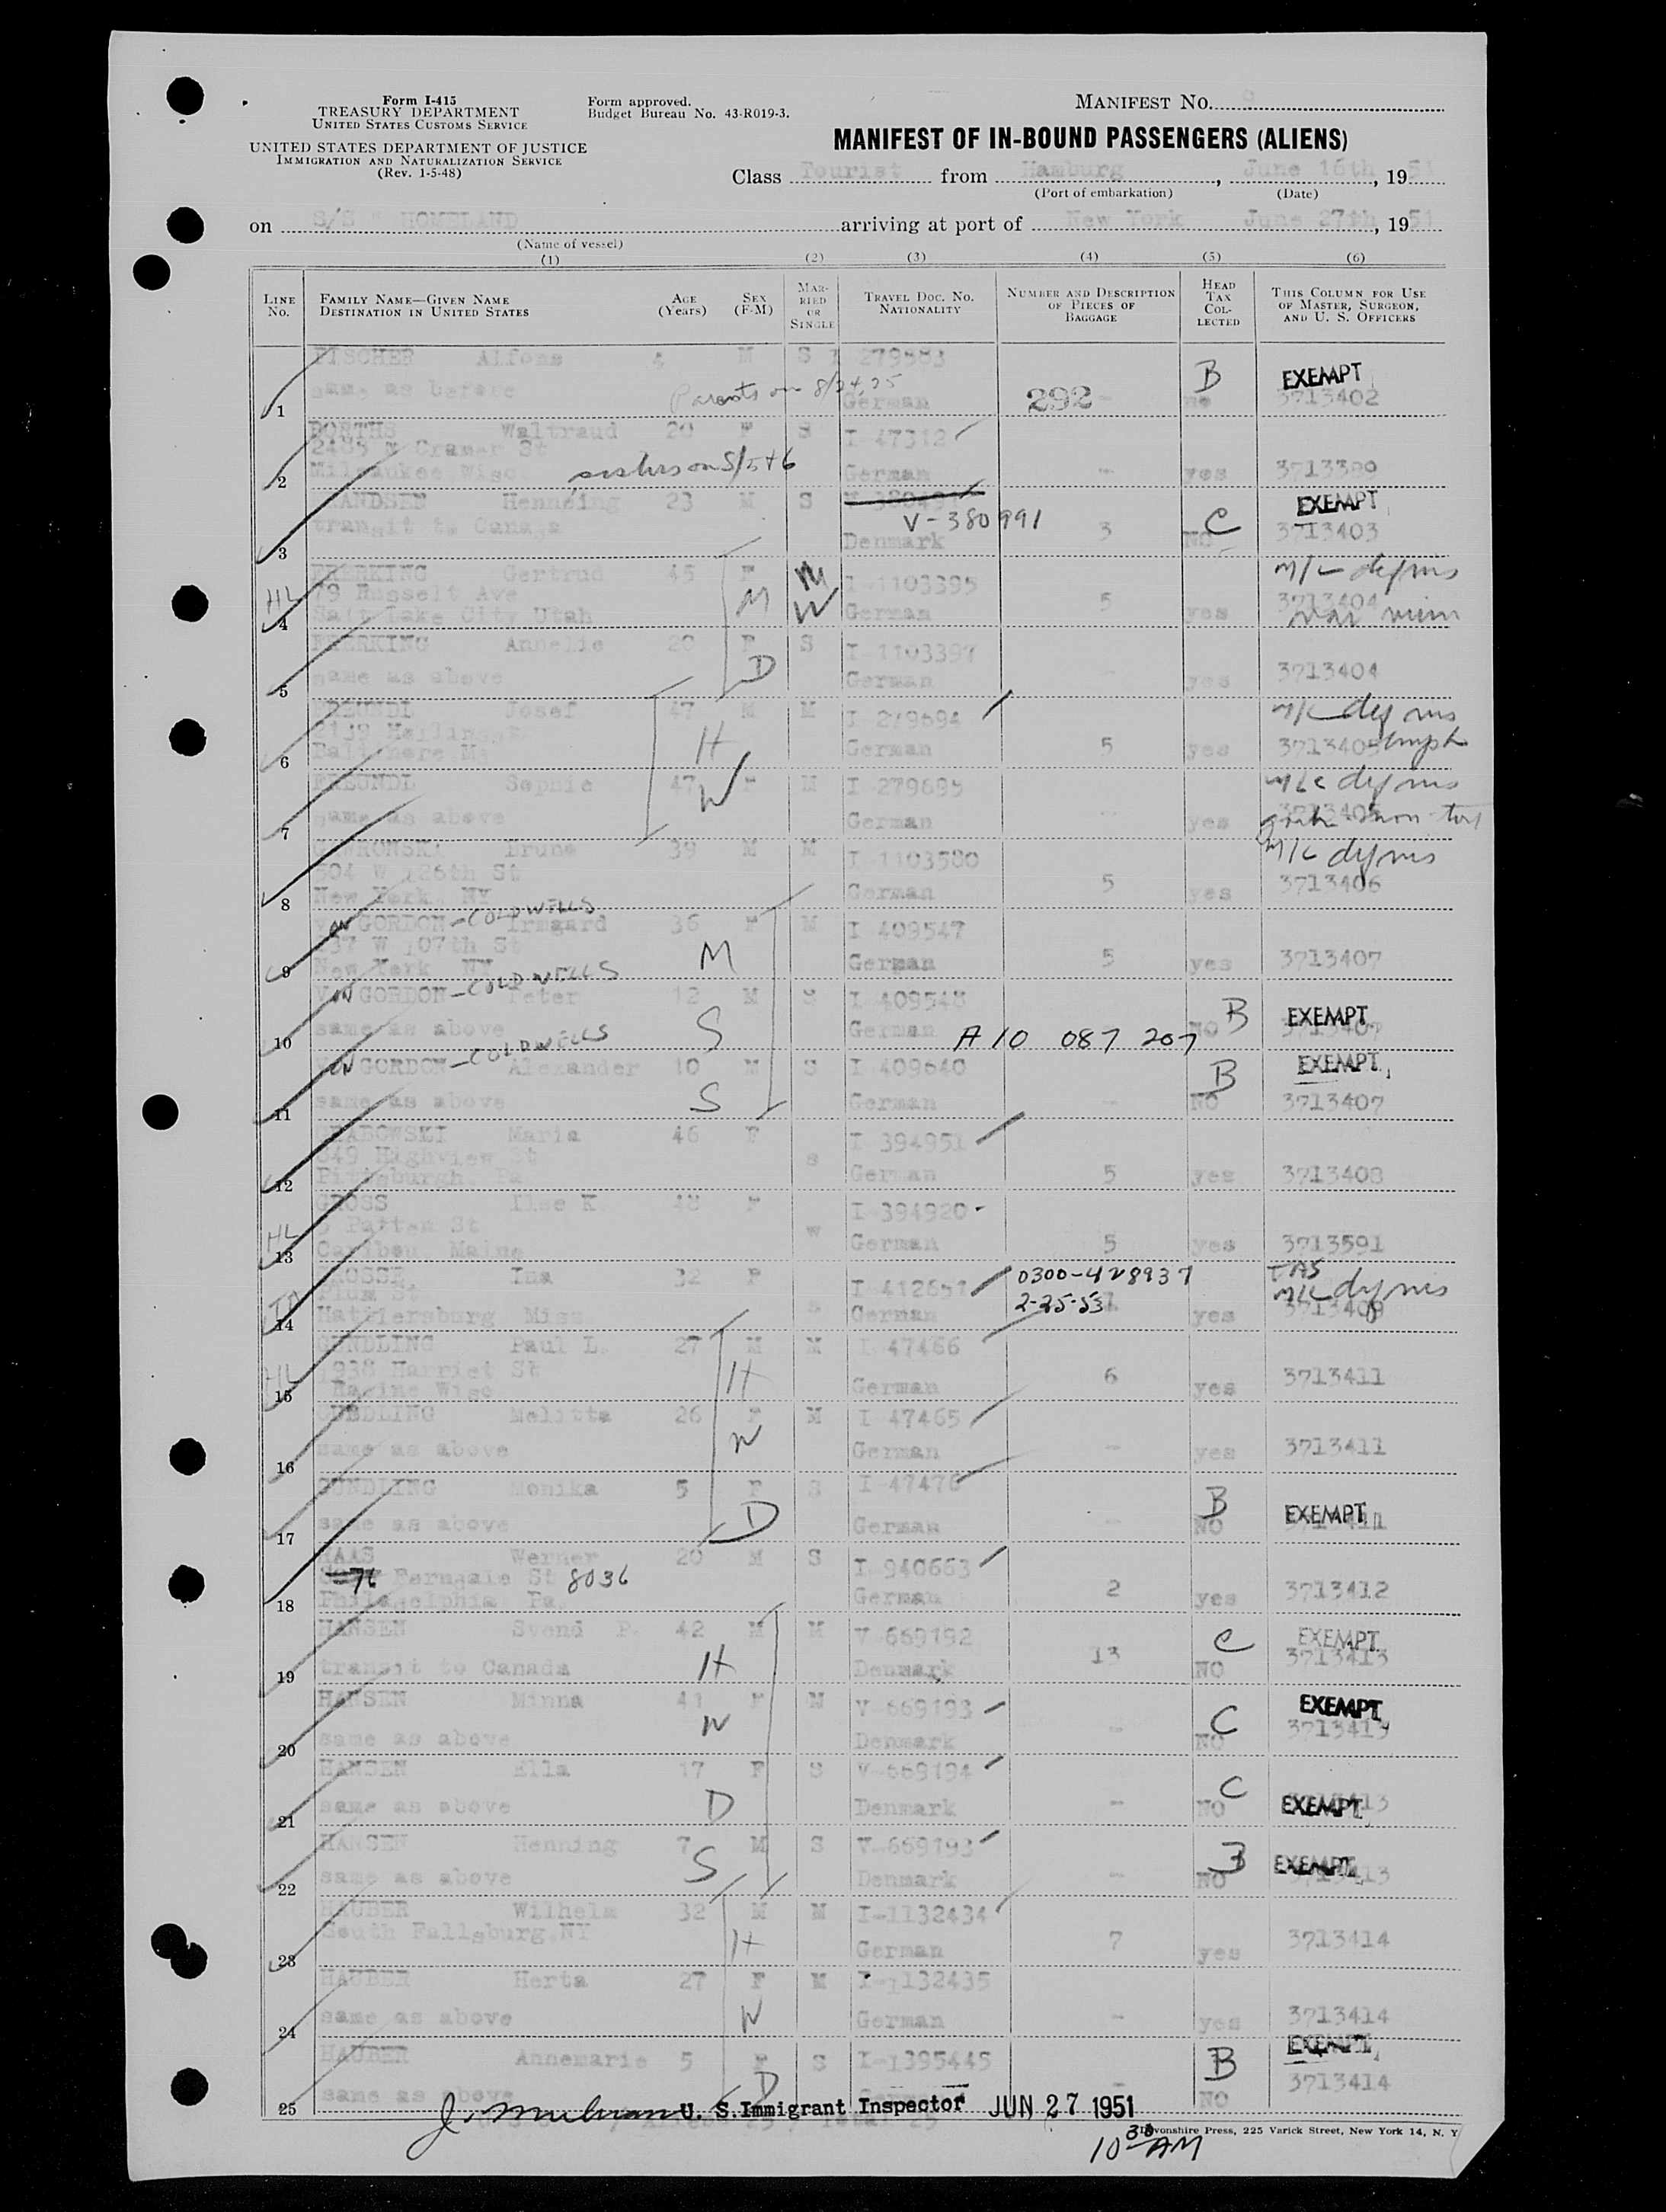 Form I-415
TREASURY DEPARTMENT
UNITED STATES CUSTOMS SERVICE
UNITED STATES DEPARTMENT OF JUSTICE
IMMIGRATION AND NATURALIZATION SERVICE
(Rev. 1-5-48)
Form approved.
Budget Bureau No. 43-R019-3.
MANIFEST NO. 9
MANIFEST OF IN-BOUND PASSENGERS (ALIENS)
Class Tourist from Hamburg, June 16th, 1951
(Port of embarkation) (Date)
on S/S " HOMELAND arriving at port of New York June 27th, 1951
(Name of vessel)
(1) (2) (3) (4) (5) (6)
LINE No. FAMILY NAME—GIVEN NAME DESTINATION IN UNITED STATES AGE (Years) SEX (F-M) MARRIED OR SINGLE TRAVEL DOC. NO. NATIONALITY NUMBER AND DESCRIPTION OF PIECES OF BAGGAGE HEAD TAX COLLECTED THIS COLUMN FOR USE OF MASTER, SURGEON, AND U. S. OFFICERS
FISCHER Alfons 4 M S I 279583 B EXEMPT
1 same as before Parents on 8/24,25 German 292 - no 3713402
Waltraud 20 F S I-47312
2485 N Cramer St
2 Milwaukee Wisc sisters on 5/5+6 German - yes 3713389
Henning 23 M S EXEMPT
transit to Canada V-380991 C
3 Denmark 3 NO 3713403
FRERKING Gertrud 45 F M M W I-1103395
HL 79 Russelt Ave
4 Salt Lake City Utah German 5 yes 3713404
FRERKING Annelie 20 F S I-1103397
5 same as above D German - yes 3713404
FREUNDL Josef 47 M M I 279694
6 Baltimore Md H German 5 yes 3713405
FREUNDL Sophie 47 F M I 279695
7 same as above W German - yes
GAWRONSKI Bruno 39 M M I 1103580
504 W 126th St
8 New York NY German 5 yes 3713406
VON GORDON-COLDWELLS Irmgard 36 F M I 409547
W 107th St
9 New York NY M German 5 yes 3713407
VON GORDON-COLDWELLS Peter 12 M S I 409548 B EXEMPT
10 same as above S German A10 087 207 NO 3713407
VON GORDON-COLDWELLS Alexander 10 M S I 409640 B EXEMPT
11 same as above S German - NO 3713407
GRABOWSKI Maria 46 F s I 394951
349 Highview St
12 Pittsburgh Pa German 5 yes 3713408
GROSS Ilse K 48 F w I-394920
HL Patten St
13 Caribou Maine German 5 yes 3713591
Ina 32 F I 412657 0300-428937
Plum St 2-25-53
14 Hattiersburg Miss German yes 3713409
GUNDLING Paul L. 27 M M I 47466
HL 1938 Harriet St H
15 Racine Wisc German 6 yes 3713411
GUNDLING Melitta 26 F M I 47465
16 same as above W German - yes 3713411
GUNDLING Monika 5 F S I-47476 B
17 same as above D German - NO EXEMPT 3713411
HAAS Werner 20 M S I 940663
Ferndale St 8036
18 Philadelphia Pa. German 2 yes 3713412
HANSEN Svend P. 42 M M V 669192 C EXEMPT
19 transit to Canada H Denmark 13 NO 3713413
HANSEN Minna 41 F M V 669193 EXEMPT
20 same as above W Denmark - C NO 3713413
HANSEN Ella 17 F S V-669194 C
21 same as above D Denmark - NO EXEMPT
HANSEN Henning 7 M S V-669193 B EXEMPT
22 same as above S Denmark - NO
HAUBER Wilhelm 32 M M I-1132434
South Fallsburg,NY
23 H German 7 yes 3713414
HAUBER Herta 27 F M I-1132435
24 same as above W German - yes 3713414
HAUBER Annemarie 5 F S I-1395445 B EXEMPT
25 same as above D NO 3713414
U. S. Immigrant Inspector JUN 27 1951
10 30 AM
Devonshire Press, 225 Varick Street, New York 14, N. Y.